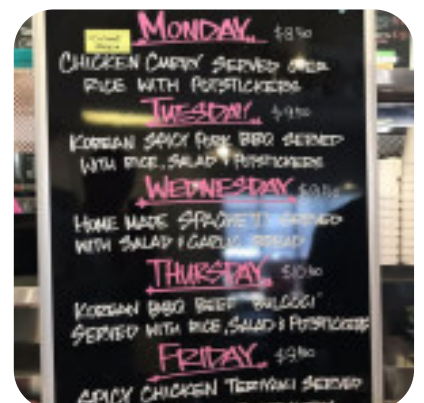 MONDAY.. $8.50
CHICKEN CURRY SERVED OVER
RICE WITH POTSTICKERS
TUESDAY..
KOREAN SPICY PORK BBQ SERVED
WITH RICE, SALAD & POTSTICKERS
WEDNESDAY
HOME MADE SPAGHETTI SERVED
WITH SALAD & GARLIC BREAD
THURSDAY. $10.50
KOREAN BBQ BEEF "BULGOGI"
SERVED WITH RICE, SALAD & POTSTICKERS
FRIDAY..
SPICY CHICKEN TERIYAKI SERVED